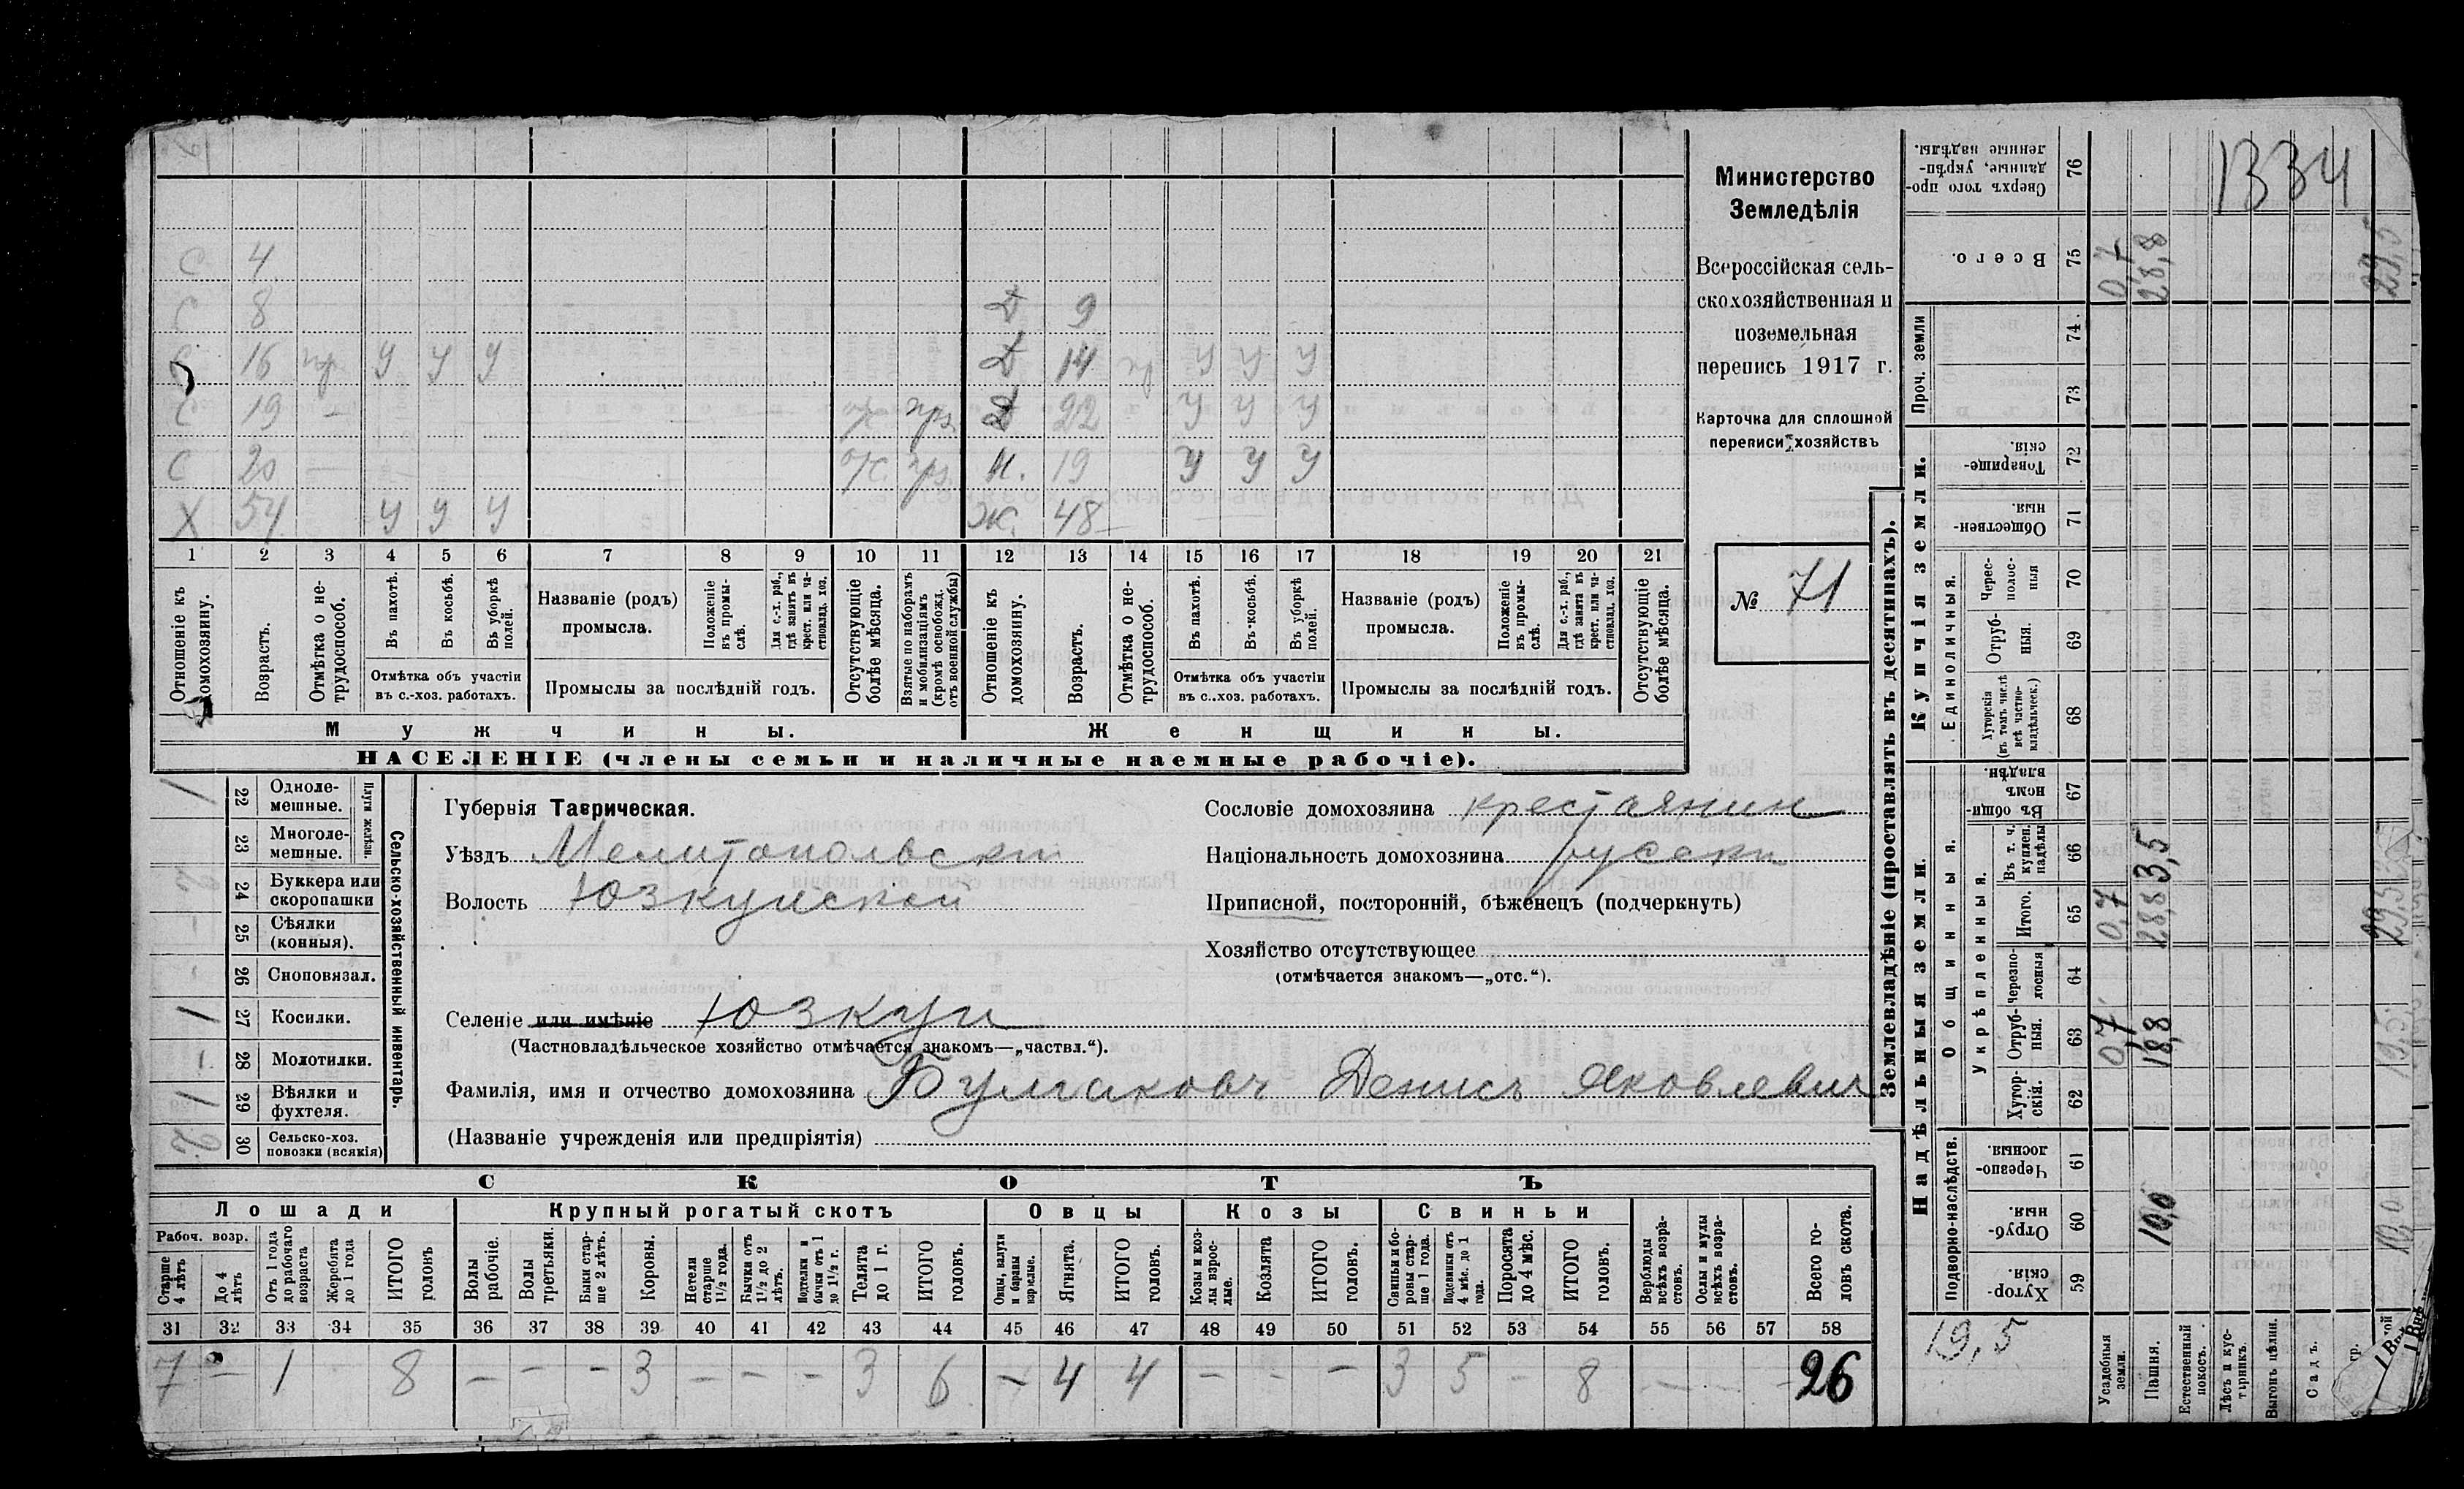 1334
Министерство
Земледѣлія
Всероссійская сель-
скохозяйственная и
поземельная
перепись 1917 г.
Карточка для сплошной
переписи хозяйствъ
№ 71
С 4
С 8 Д 9
С 16 У У У Д 14 У У У
С 19 — Д 22 У У У
С 20 — Н. 19 У У У
Х 54 У У У Ж. 48 —
1 2 3 4 5 6 7 8 9 10 11 12 13 14 15 16 17 18 19 20 21
Отношеніе къ домохозяину.
Возрастъ.
Отмѣтка о не-трудоспособ.
Въ пахотѣ.
Въ косьбѣ.
Въ уборкѣ полей.
Отмѣтка объ участіи
въ с.-хоз. работахъ.
Названіе (родъ)
промысла.
Положеніе въ промы-слѣ.
Для с.-х. раб., гдѣ занятъ въ крест. или ча-стновлад. хоз.
Промыслы за послѣдній годъ.
Отсутствующіе болѣе мѣсяца.
Взятые по наборамъ и мобилизаціямъ (кромѣ освобожд. отъ военной службы)
Отношеніе къ домохозяину.
Возрастъ.
Отмѣтка о не-трудоспособ.
Въ пахотѣ.
Въ косьбѣ.
Въ уборкѣ полей.
Отмѣтка объ участіи
въ с.-хоз. работахъ.
Названіе (родъ)
промысла.
Положеніе въ промы-слѣ.
Для с.-х. раб., гдѣ занята въ крест. или ча-стновлад. хоз.
Промыслы за послѣдній годъ.
Отсутствующіе болѣе мѣсяца.
Мужчины. Женщины.
НАСЕЛЕНІЕ (члены семьи и наличные наемные рабочіе).
Сельско-хозяйственный инвентарь.
Плуги желѣзн.
1 22 Одноле-мешные.
23 Многоле-мешные.
24 Буккера или скоропашки
- 25 Сѣялки (конныя).
- 26 Сноповязал.
1 27 Косилки.
1 28 Молотилки.
1 29 Вѣялки и фухтеля.
2 30 Сельско-хоз. повозки (всякія)
Губернія Таврическая.
Уѣздъ Мелитопольски
Волость Юзкуйской
Сословіе домохозяина крестаянин
Національность домохозяина русски
Приписной, посторонній, бѣженецъ (подчеркнуть)
Хозяйство отсутствующее
(отмѣчается знакомъ—„отс.“).
Селеніе или имѣніе Юзкуи
(Частновладѣльческое хозяйство отмѣчается знакомъ—„частвл.“).
Фамилія, имя и отчество домохозяина Булгаковъ Денисъ Яковлевич
(Названіе учрежденія или предпріятія)
СКОТЪ
Лошади Крупный рогатый скотъ Овцы Козы Свиньи
Рабоч. возр.
Старше 4 лѣтъ
До 4 лѣтъ
Отъ 1 года до рабочаго возраста
Жеребята до 1 года
ИТОГО головъ
Волы рабочіе.
Волы третьяки.
Быки стар-ше 2 лѣтъ.
Коровы.
Нетели старше 1½ года.
Бычки отъ 1½ до 2 лѣтъ.
Подтелки и бычки отъ 1 до 1½ г.
Телята до 1 г.
ИТОГО головъ.
Овцы, валухи и бараны взрослые.
Ягнята.
ИТОГО головъ.
Козы и коз-лы взрос-лые.
Козлята
ИТОГО головъ.
Свиньи и бо-ровы стар-ше 1 года.
Подсвинки отъ 4 мѣс. до 1 года.
Поросята до 4 мѣс.
ИТОГО головъ.
Верблюды всѣхъ возра-стовъ.
Ослы и мулы всѣхъ возра-стовъ.
Всего го-ловъ скота.
31 32 33 34 35 36 37 38 39 40 41 42 43 44 45 46 47 48 49 50 51 52 53 54 55 56 57 58
7 — 1 - 8 — — — 3 — — - 3 6 — 4 4 — - — 3 5 - 8 — — — 26
Землевладѣніе (проставлять въ десятинахъ).
Надѣльныя земли. Купчія земли. Проч. земли
Подворно-наслѣдств. Общинныя. Укрѣпленныя. Единоличныя.
59 Хутор-скія.
60 Отруб-ныя. 10,0 10,0
61 Черезпо-лосныя.
62 Хутор-скія.
63 Отруб-ныя. 0,7 18,8 19,5
64 Черезпо-лосныя
65 Итого. 0,7 28,8 29,5
66 Въ т. ч. куплен. надѣлы 3,5
67 Въ общин-номъ владѣн.
68 Хуторскія (въ томъ числѣ всѣ частно-владѣльческ.)
69 Отруб-ныя.
70 Черес-полос-ныя
71 Обществен-ныя.
72 Товарище-скія.
73
74
75 Всего. 0,7 28,8 29,5
76 Сверхъ того про-данные, укрѣп-ленные надѣлы.
19,5
Усадебныя земли.
Пашня.
Естественный покосъ.
Лѣсъ и кус-тарникъ.
Выгонъ цѣлин.
Садъ.